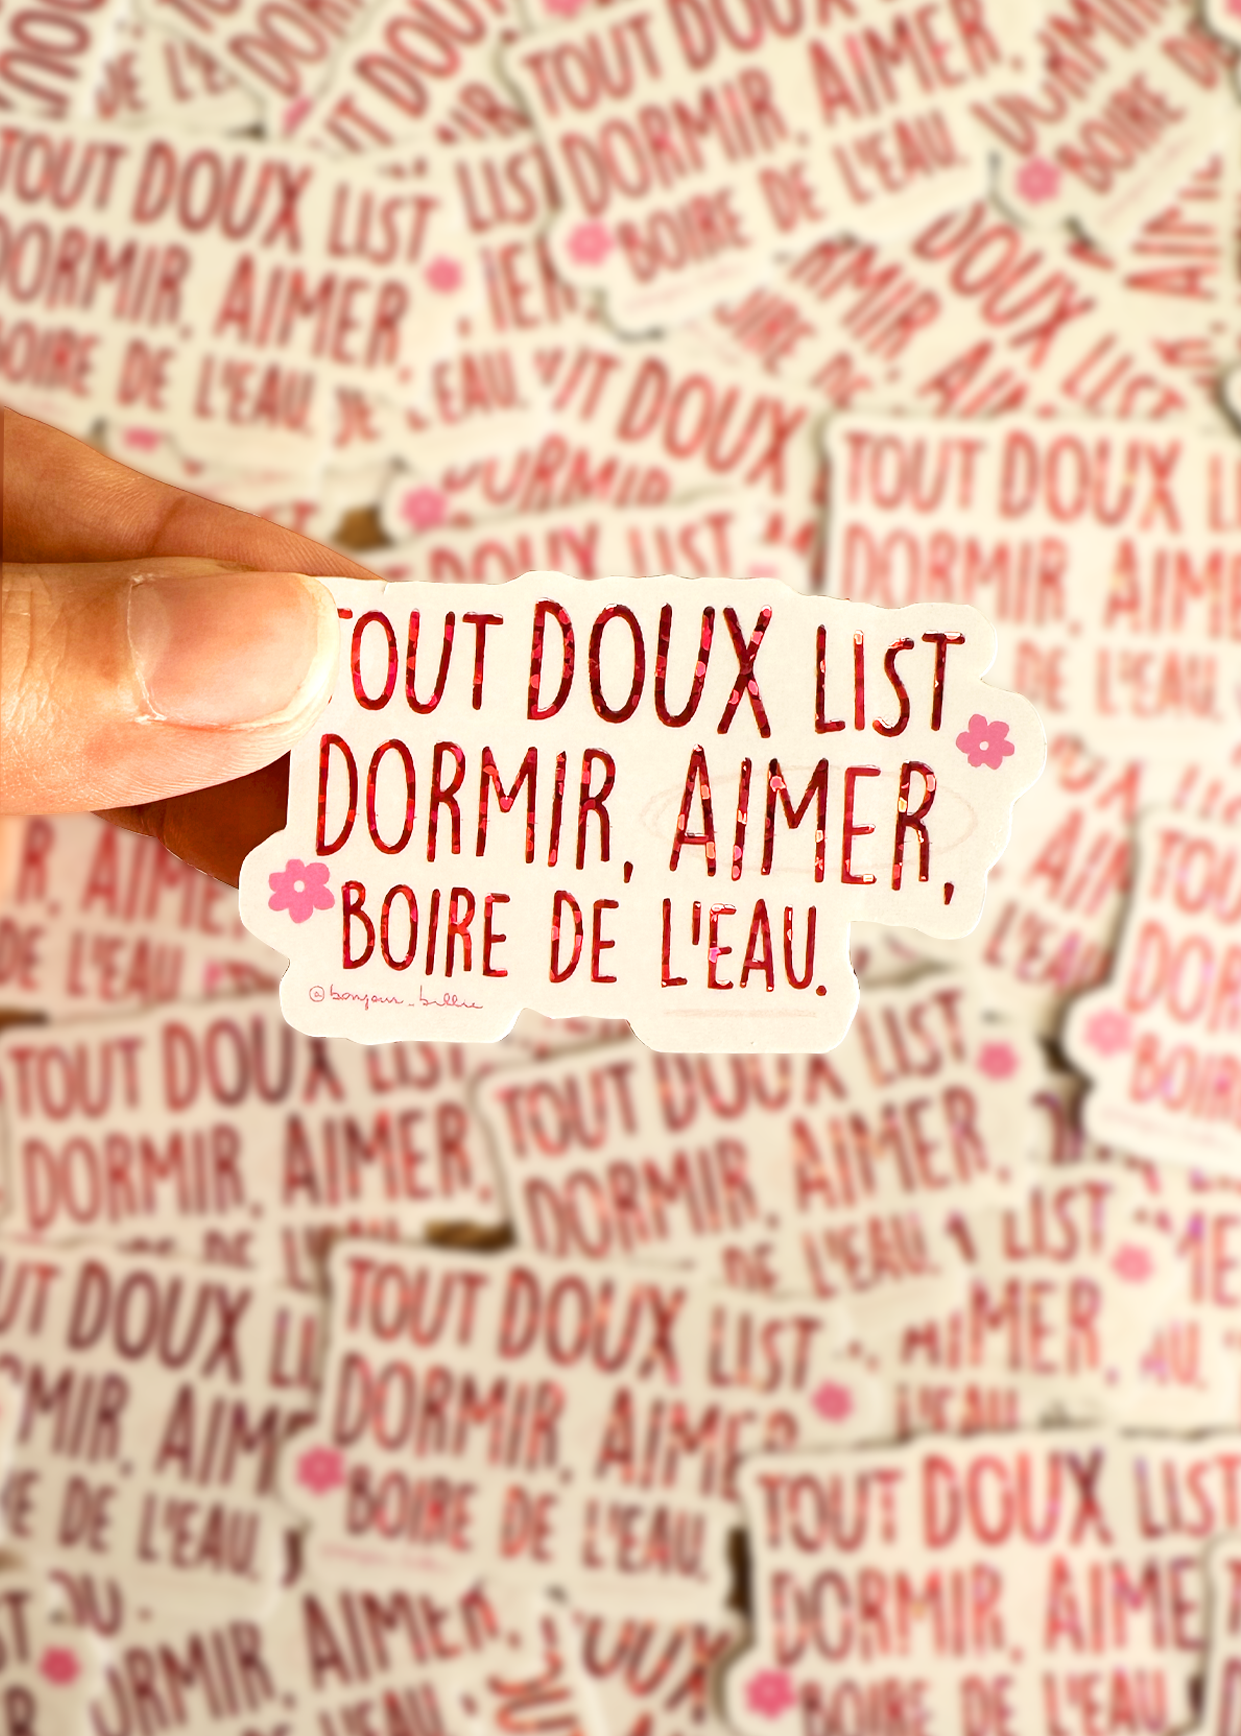 TOUT DOUX LIST
DORMIR, AIMER,
BOIRE DE L'EAU.
@bonjour_billie